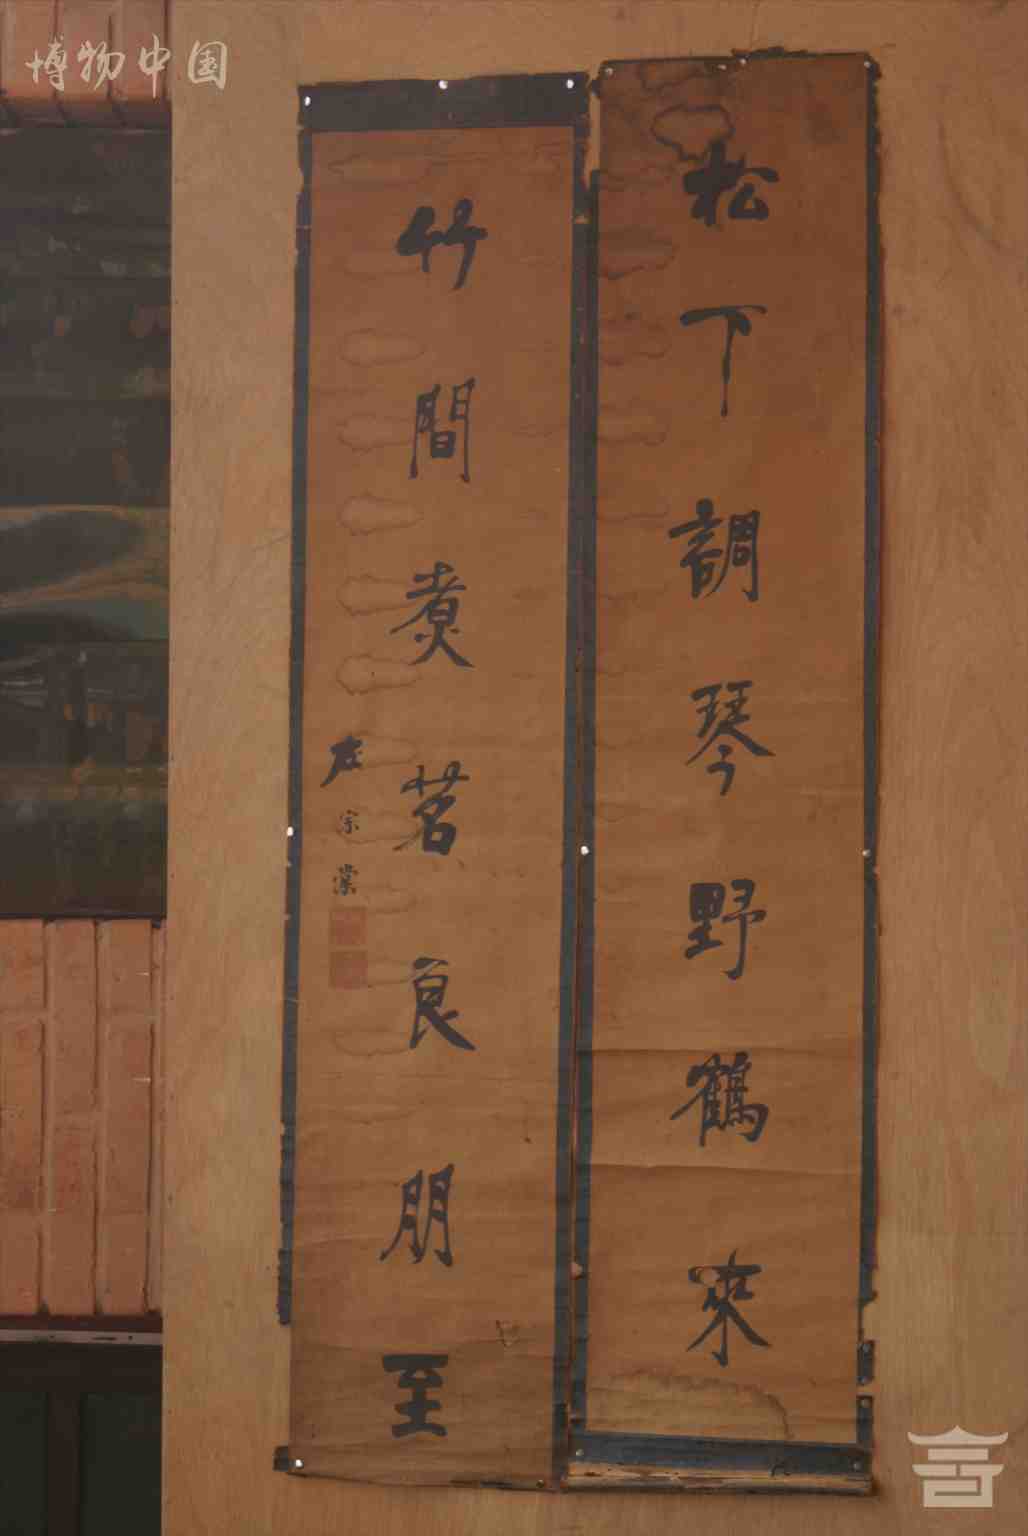 博物中国
松下調琴野鶴來
竹間煑茗良朋至
左宗棠